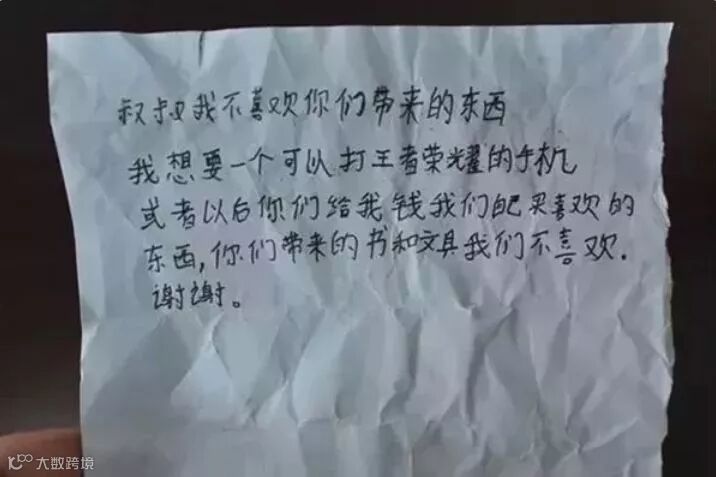 叔叔我不喜欢你们带来的东西
我想要一个可以打王者荣耀的手机
或者以后你们给我钱我们自己买喜欢的
东西,你们带来的书和文具我们不喜欢.
谢谢。
大数跨境